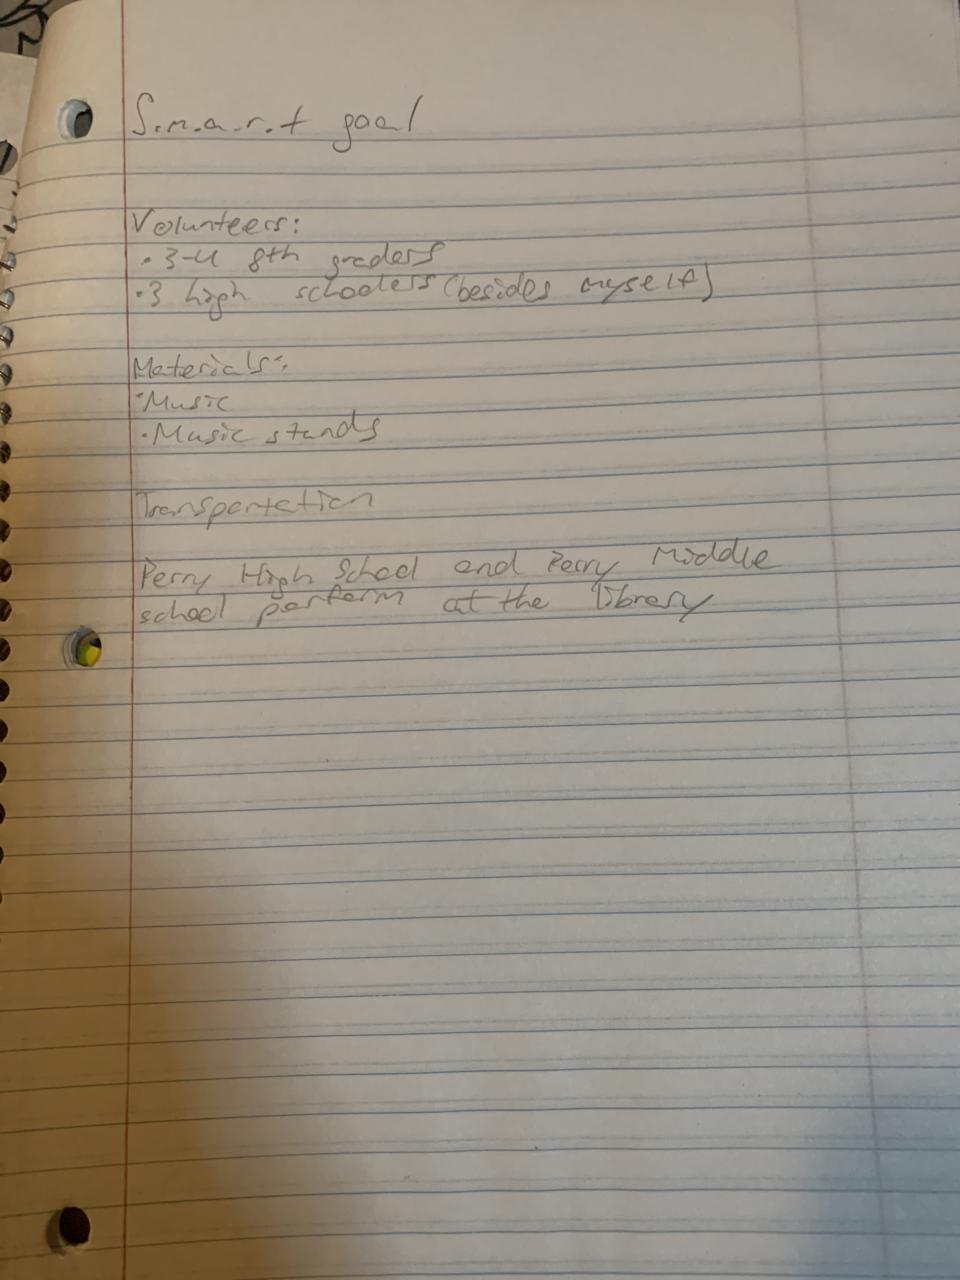 S.m.a.r.t goal
Volunteers:
· 3-4 8th graders
· 3 high schoolers (besides myself)
Materials:
· Music
· Music stands
Transportation
Perry High School and Perry Middle
school perform at the library